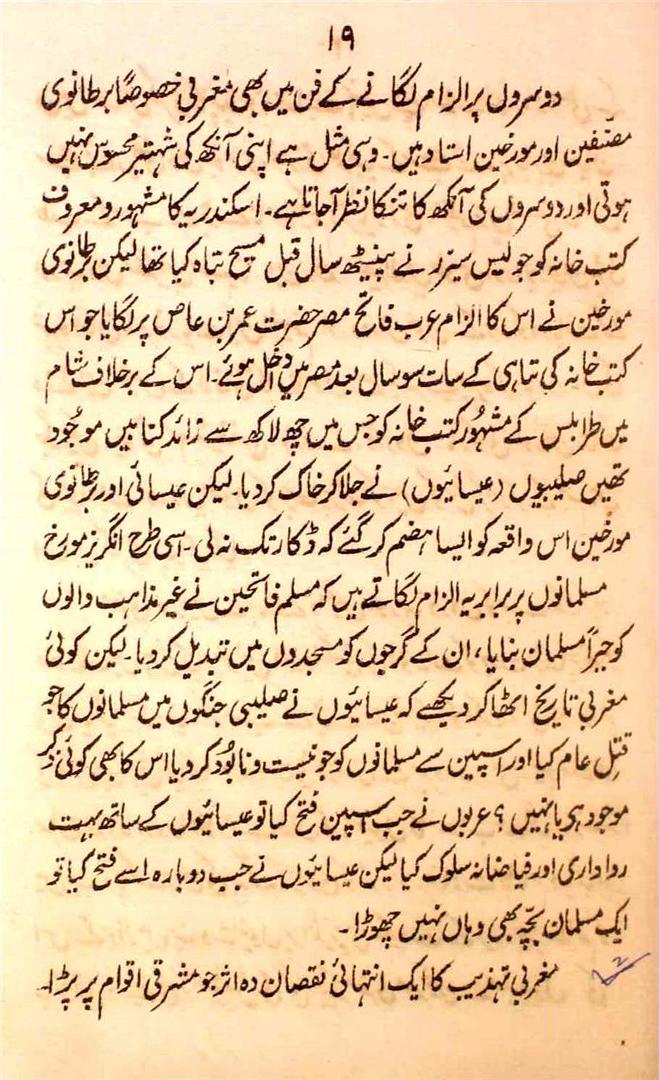 ۱۹
دوسروں پر الزام لگانے کے فن میں بھی مغربی خصوصًا برطانوی
مصنّفین اور مورخین استاد ہیں۔ وہی مثل ہے اپنی آنکھ کی شہتیر محسوس نہیں
ہوتی اور دوسروں کی آنکھ کا تنکا نظر آجاتا ہے۔ اسکندریہ کا مشہور و معروف
کتب خانہ کو جولیس سیزر نے سینٹھ سال قبل مسیح تباہ کیا تھا لیکن برطانوی
مورخین نے اس کا الزام عرب فاتح مصر حضرت عمر بن عاص پر لگایا جو اس
کتب خانہ کی تباہی کے سات سو سال بعد مصر میں داخل ہوئے۔ اس کے برخلاف شام
میں طرابلس کے مشہُور کتب خانہ کو جس میں چھ لاکھ سے زائد کتابیں موجُود
تھیں صلیبیوں (عیسائیوں) نے جلا کر خاک کر دیا۔ لیکن عیسائی اور برطانوی
مورخین اس واقعہ کو ایسا ہضم کر گئے کہ ڈکار تک نہ لی۔ اسی طرح انگریز مورخ
مسلمانوں پر برابر یہ الزام لگاتے ہیں کہ مسلم فاتحین نے غیر مذاہب والوں
کو جبراً مسلمان بنایا، ان کے گرجوں کو مسجدوں میں تبدیل کر دیا۔ لیکن کوئی
مغربی تاریخ اٹھا کر دیکھے کہ عیسائیوں نے صلیبی جنگوں میں مسلمانوں کا جو
قتلِ عام کیا اور اسپین سے مسلمانوں کو جو نیست و نابُود کر دیا اس کا بھی کوئی ذکر
موجود ہے یا نہیں؟ عربوں نے جب اسپین فتح کیا تو عیسائیوں کے ساتھ بہت
رواداری اور فیاضانہ سلوک کیا لیکن عیسائیوں نے جب دوبارہ اسے فتح کیا تو
ایک مسلمان بچّہ بھی وہاں نہیں چھوڑا۔
مغربی تہذیب کا ایک انتہائی نقصان دہ اثر جو مشرقی اقوام پر پڑا۔